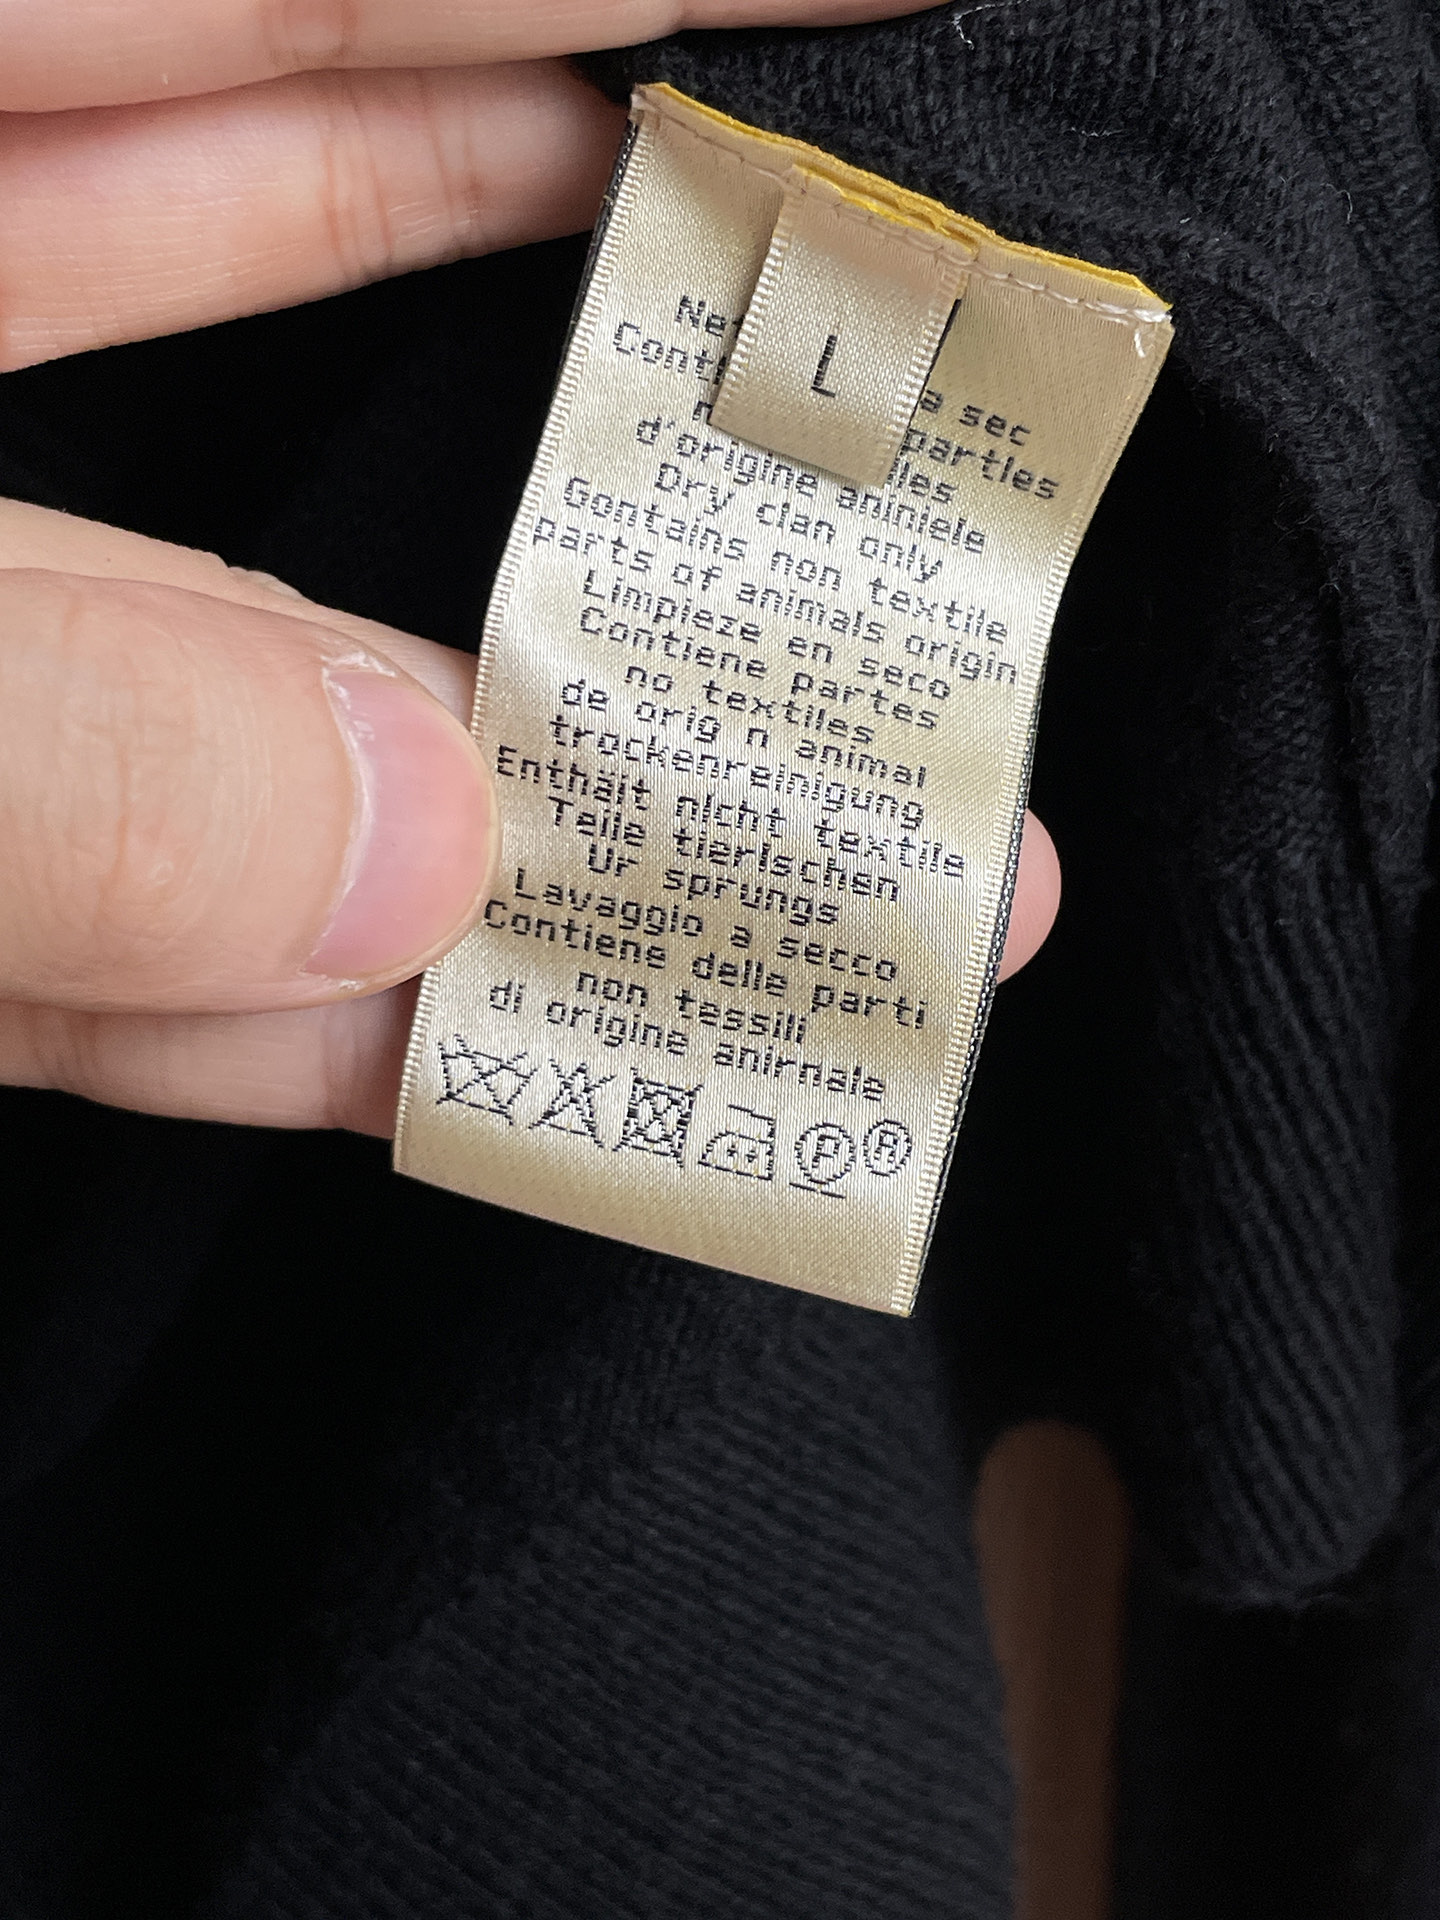 L
a sec
parties
d'origine aniniele
Dry clan only
Gontains non textile
parts of animals origin
Limpieze en seco
Contiene partes
no textiles
de orig n animal
trockenreinigung
Enthäit nicht textile
Teile tierischen
Ur sprungs
Lavaggio a secco
Contiene delle parti
non tessili
di origine anirnale
P R